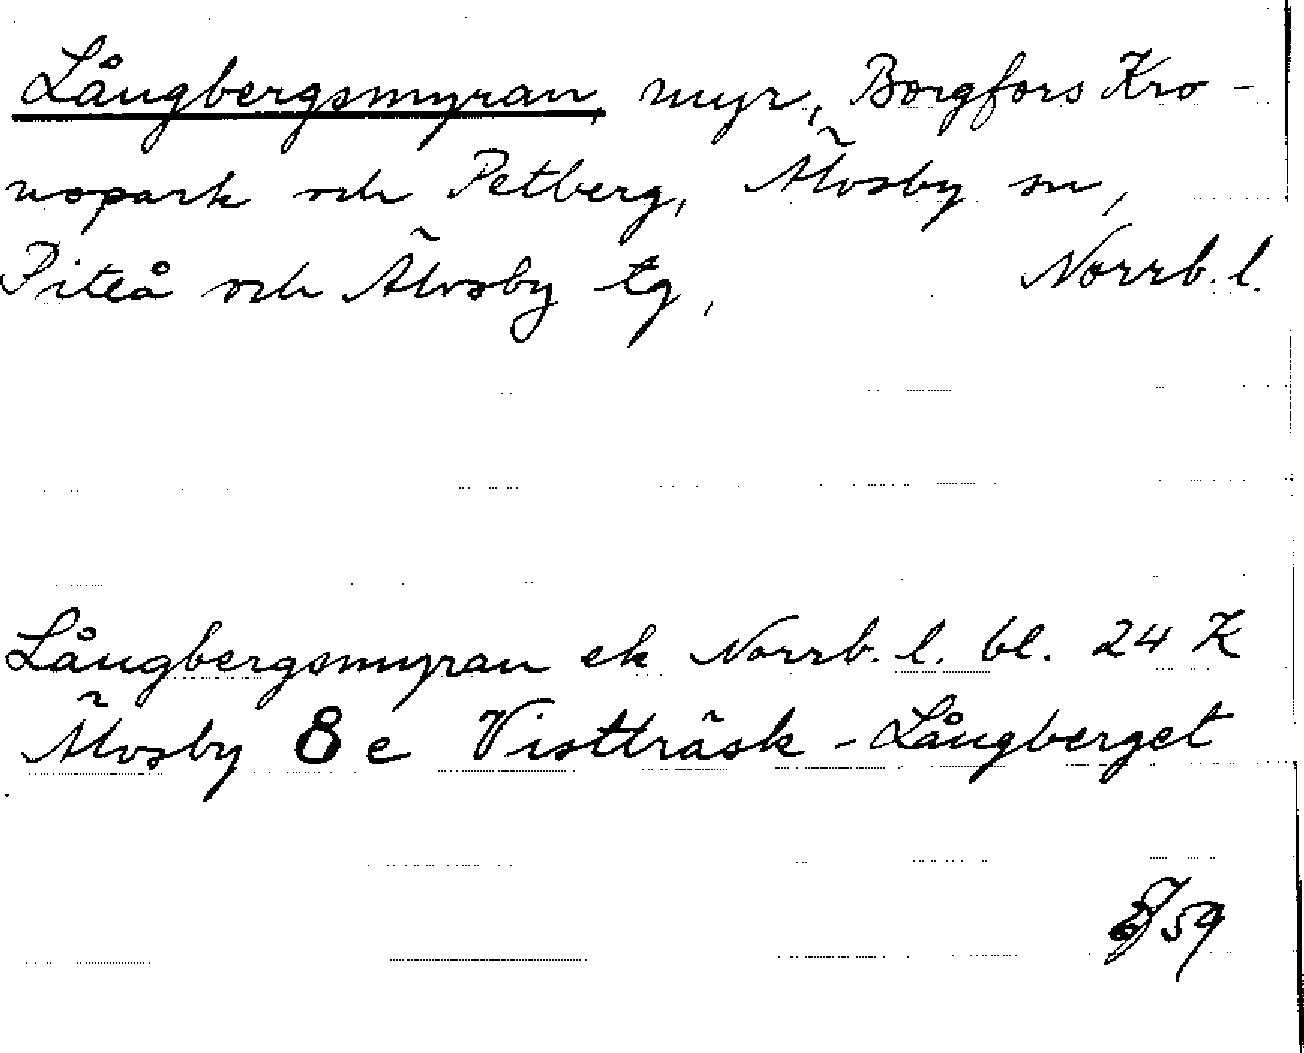 Långbergsmyran, myr, Borgfors Kro-
nopark och Petberg, Älvsby sn,
Piteå och Älvsby tg, Norrb. l.
Långbergsmyran ek Norrb. l. bl. 24 K
Älvsby 8 e Vistträsk - Långberget